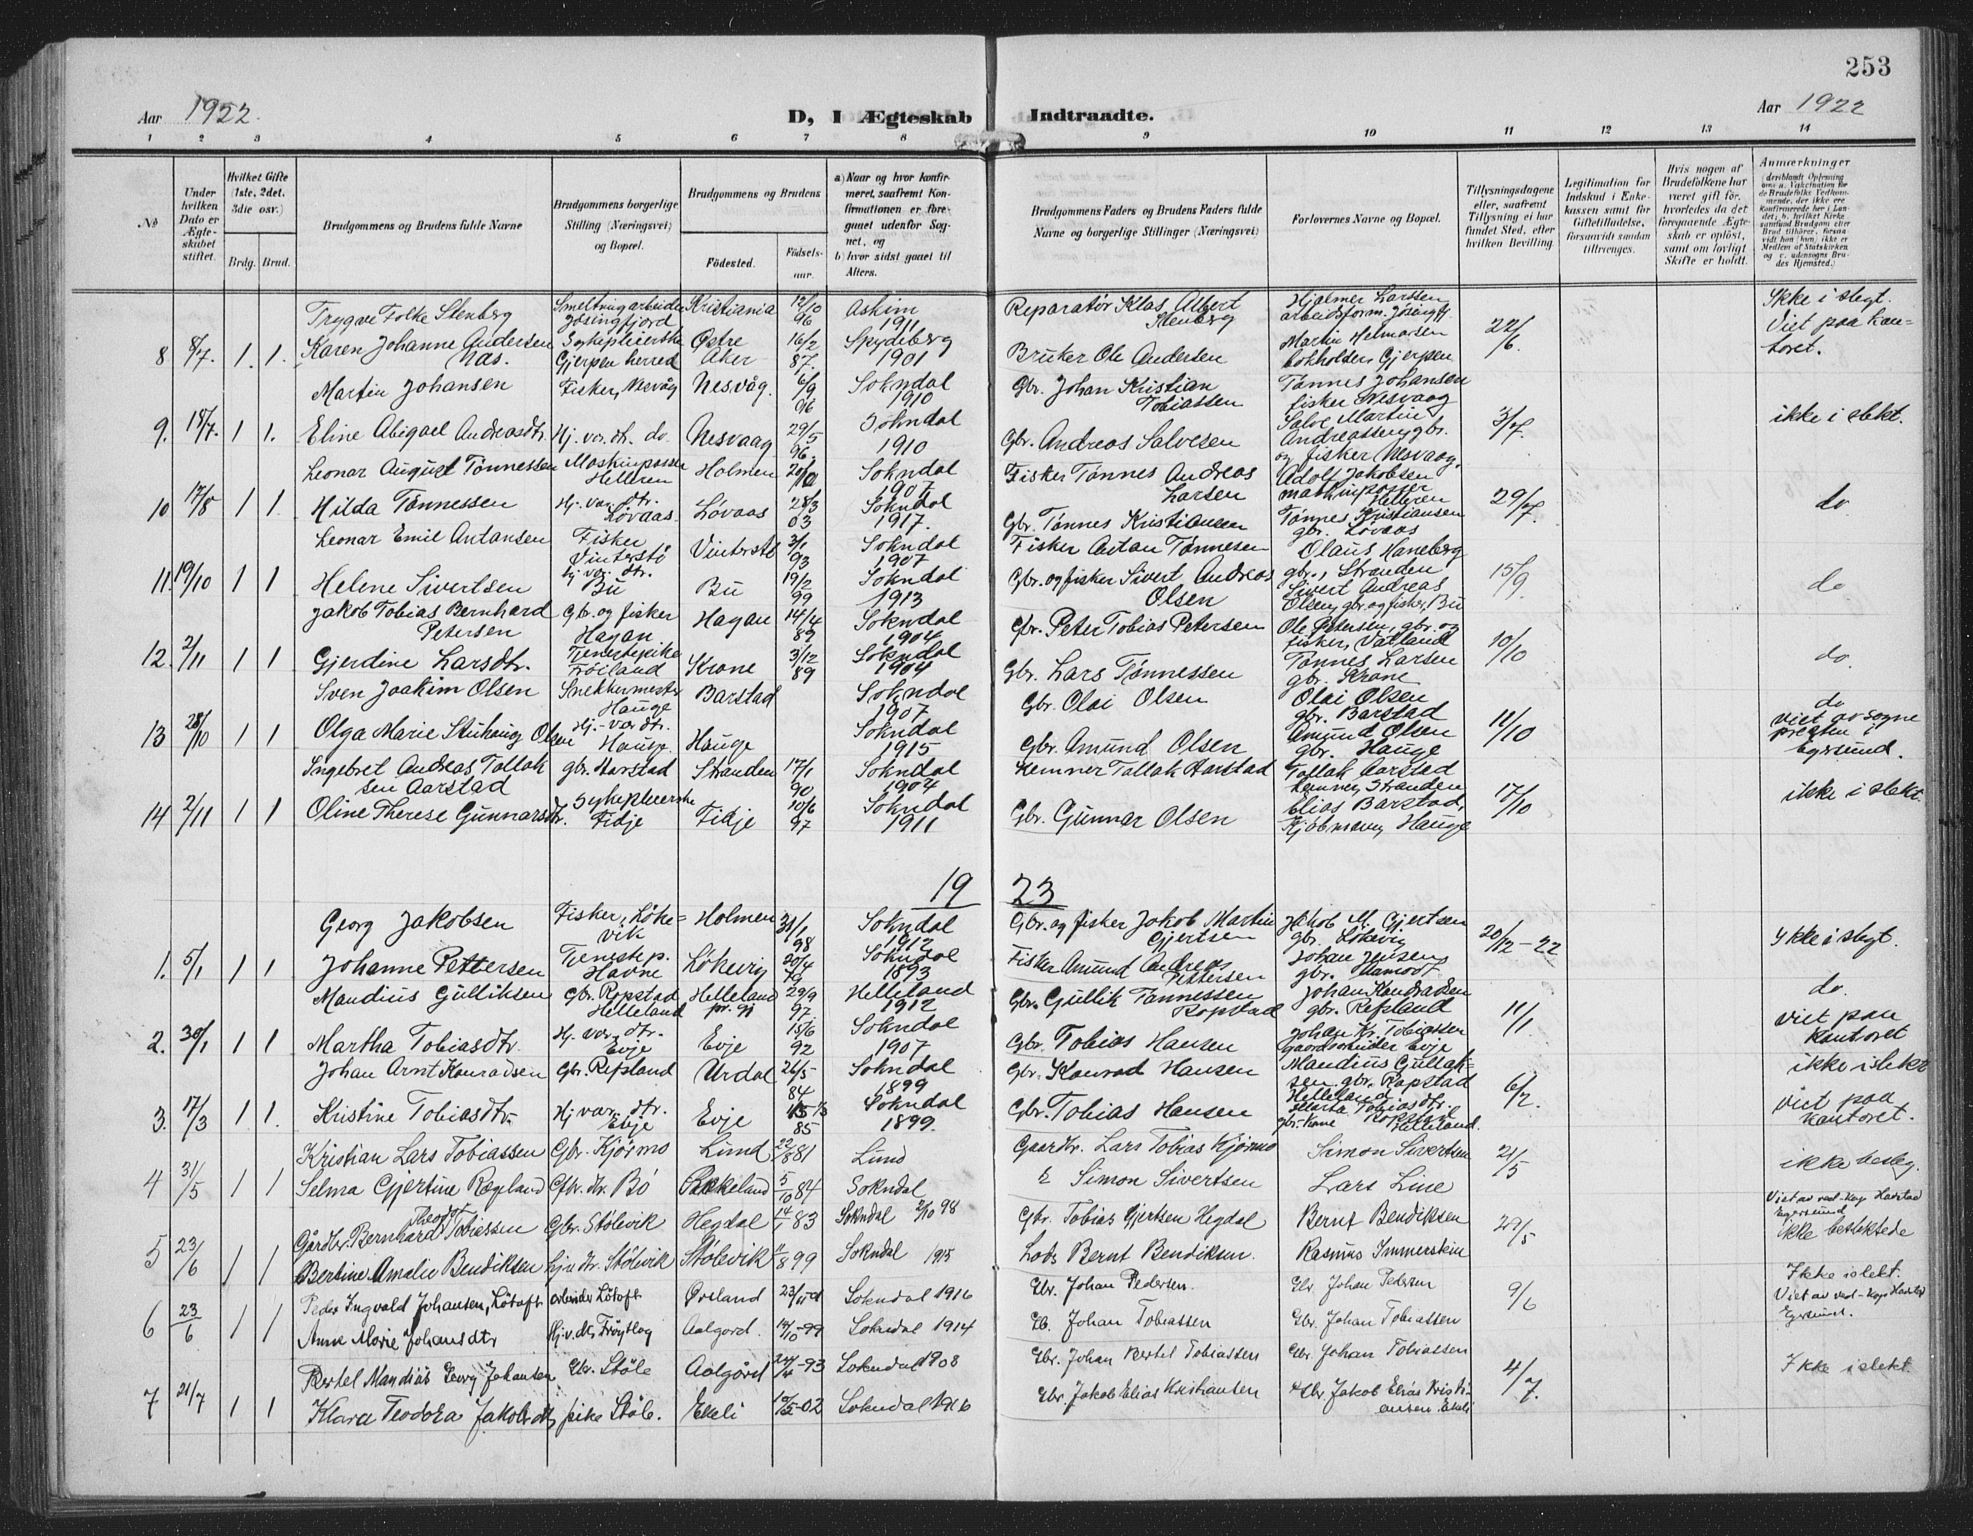 253
Aar 1922.
D, I Ægteskab Indtraadte.
Aar 1922
1 2 3 4 5 6 7 8 9 10 11 12 13 14
№
Under hvilken Dato er Ægteskabet stiftet.
Hvilket Gifte (1ste, 2det, 3die osv.)
Brdg. Brud.
Brudgommens og Brudens fulde Navne
Brudgommens borgerlige Stilling (Næringsvei) og Bopæl.
Brudgommens og Brudens
Fødested.
Fødselsaar.
a) Naar og hvor konfirmeret, saafremt Konfirmationen er foregaaet udenfor Sognet, og
b) hvor sidst gaaet til Alters.
Brudgommens Faders og Brudens Faders fulde Navne og borgerlige Stillinger (Næringsvei)
Forlovernes Navne og Bopæl.
Tillysningsdagene eller, saafremt Tillysning ei har fundet Sted, efter hvilken Bevilling.
Legitimation for Indskud i Enkekassen samt for Giftetilladelse, forsaavidt saadan tiltrænges.
Hvis nogen af Brudefolkene har været gift før, hvorledes da det foregaaende Ægteskab er opløst, samt om lovligt Skifte er holdt.
Anmærkninger
Trygve Folke Stenberg Smeltningarbeider Jøsingfjord Kristiania 12/10 96 Askim 1911 Reparatør Klas Albert Stenberg Hjalmer Larssen arbeidsform. Jøsingfj. Ikke i slegt.
8 8/7. 1. 1. Karen Johanne Andersen Næs. Sykepleierske Gjerpen herred Østre Aker 16/2 87. Spydeberg 1901 Bruker Ole Andersen Martin Helmersen Gjerpen 22/6 Viet paa kantoret.
Martin Johansen Fisker, Nesvåg Nesvåg. 6/9 96 Sokndal 1910 Gbr. Johan Kristian Tobiassen Tønnes Johansen fisker Nesvaag
9. 18/7. 1 1. Eline Abigael Andreasdtr. Hj. vær. dtr. do. Nesvaag 29/5 96. Sokndal 1910 Gbr. Andreas Salvesen Salve Martin Andreassen, gbr. og fisker Nesvaag. 3/7. ikke i slekt.
Leonar August Tønnessen Maskinpasser Helleren Holmen Sokndal 1907 Fisker Tønnes Andreas Larsen Adolf Jakobsen maskinpasser Helleren
10 17/8 1 1 Hilda Tønnessen Hj. vær. dtr. Løvaas. Løvaas 28/3 03 Sokndal 1917. Gbr. Tønnes Kristiansen Tønnes Kristiansen gbr. Lovaas 29/7. do
Leonar Emil Antansen Fisker Vinterstø Vinterstø 3/1 93 Sokndal 1907 Fisker Antan Tønnesen Olaus Haneberg gbr., Stranden
11. 19/10 1 1 Helene Sivertsen hj. vær. dtr. Bu Bu 19/2 99 Sokndal 1913 Gbr. og fisker Sivert Andreas Olsen Sivert Andreas Olsen, gbr. og fisker, Bu 15/9 do
Jakob Tobias Bernhard Petersen Gbr. og fisker Hagan Hagan 14/4 89 Sokndal 1904 Gbr. Peter Tobias Petersen Ole Petersen, gbr. og fisker, Vatland
12. 2/11 1 1 Gjerdine Larsdtr. Tjenestepike Frøiland Krone 3/12 89 Sokndal 1904 Gbr. Lars Tønnessen Tønnes Larsen gbr. Krone 10/10 do.
Sven Joakim Olsen Snekkermester Hauge Barstad Sokndal 1907 Gbr. Olai Olsen Olai Olsen gbr. Barstad do
13 28/10 1 1 Olga Marie Stuhaug Olsen Hj. vær. dtr. Hauge. Hauge Sokndal 1915 Gbr. Amund Olsen Amund Olsen gbr. Hauge 11/10 viet av sogne presten i Egersund.
Ingebret Andreas Tollaksen Aarstad gbr. Aarstad Stranden 17/1 90 Sokndal 1904 Lemner Tollak Aarstad Tollak Aarstad lemner Stranden
14 2/11 1 1 Oline Therese Gunnarsdtr. Sykepleierske Fidje Fidje 10/6 97 Sokndal 1911 Gbr. Gunnar Olsen Elias Barstad, Kjøbmann, Hauge 17/10 ikke i slekt.
19 23
Georg Jakobsen Fisker, Løkevik Holmen 31/1 98 Sokndal 1912 Gbr. og fisker Jakob Martin Gjertsen Jakob M. Gjertsen gbr. Løkevig
1. 5/1 1 1 Johanne Pettersen Tjenestep. Havne Løkevig 20/4 Sokndal 1893 Fisker Amund Andreas Pettersen Johan Jensen gbr. 20/12-22 Ikke i slegt.
Mandius Gulliksen Gbr. Ropstad Helleland Helleland pr. gj 29/9 97. Helleland 1912 Gbr. Gullik Tønnessen Ropstad Johan Konradsen gbr. Refsland do.
2. 30/1 1 1 Martha Tobiasdtr. Hj. vær. dtr. Evje Evje 15/6 92 Sokndal 1907 Gbr. Tobias Hansen Johan Kr. Tobiassen gaardsarbeider Evje 11/1 viet paa kantoret
Johan Arnt Konradsen Gbr. Refsland Urdal 26/5 84 Sokndal 1899 Gbr. Konrad Hansen Mandius Gulliksen gbr. Ropstad Helleland ikke i slekt
3. 17/3 1 1. Kristine Tobiasdtr. Hj. vær. dtr. Evje Evje 85 Sokndal 1899. Gbr. Tobias Hansen Marta Tobiasdtr. gbr. kone Ropstad Helleland. 6/2. viet paa kantoret.
Kristian Lars Tobiassen Gbr. Kjørmo Lund 22/8 81 Lund Gaardbr. Lars Tobias Kjørmo Simon Sivertsen
4 31/5 1 1 Selma Gjertine Røgland Gbr. dtr. Bö Rekeland 5/10 84 Sokndal Simon Sivertsen Lars Line 21/5 ikke besleg.
Gårdbr. Bernhard Theodor Tobiessen Gbr. Stølevik Hegdal 14/1 83 Sokndal 2/10 98 Gbr. Tobias Gjertsen Hegdal Bernt Bendiksen Viet av res.kap Harstad Egersund
5 23/6 1 1 Bertine Amalie Bendiksen hjv. dtr. Stølevik Stølevik 11/8 99 Sokndal 1915 Lods Bernt Bendiksen. Rasmus Immerstein 29/5 ikke beslektede
Peder Ingvald Johansen, Løtoft arbeider Løtoft Ørsland 23/11-01 Sokndal 1916 Gbr. Johan Pedersen. Gbr. Johan Pedersen Ikke i slekt.
6 23/6 1 1 Anne Marie Johansdtr Hj. v. dtr. Frøytlog Aalgord. 14/10-99 Sokndal 1914 Gb. Johan Tobiassen Gbr. Johan Tobiassen 9/6 Viet av res-kap Harstad Egersund.
Bertel Mandius Georg Johansen Gbr. Støle Aalgård 24/4-93 Sokndal 1908 Gbr. Johan Bertel Tobiassen Gbr. Johan Tobiassen
7 21/7 1 1 Klara Teodora Jakobsdtr pike Støle. Eseli -02 Sokndal 1916 Gbr. Jakob Elias Kristiansen Gbr Jakob Elias Kristiansen Eseli 4/7. Ikke i slekt